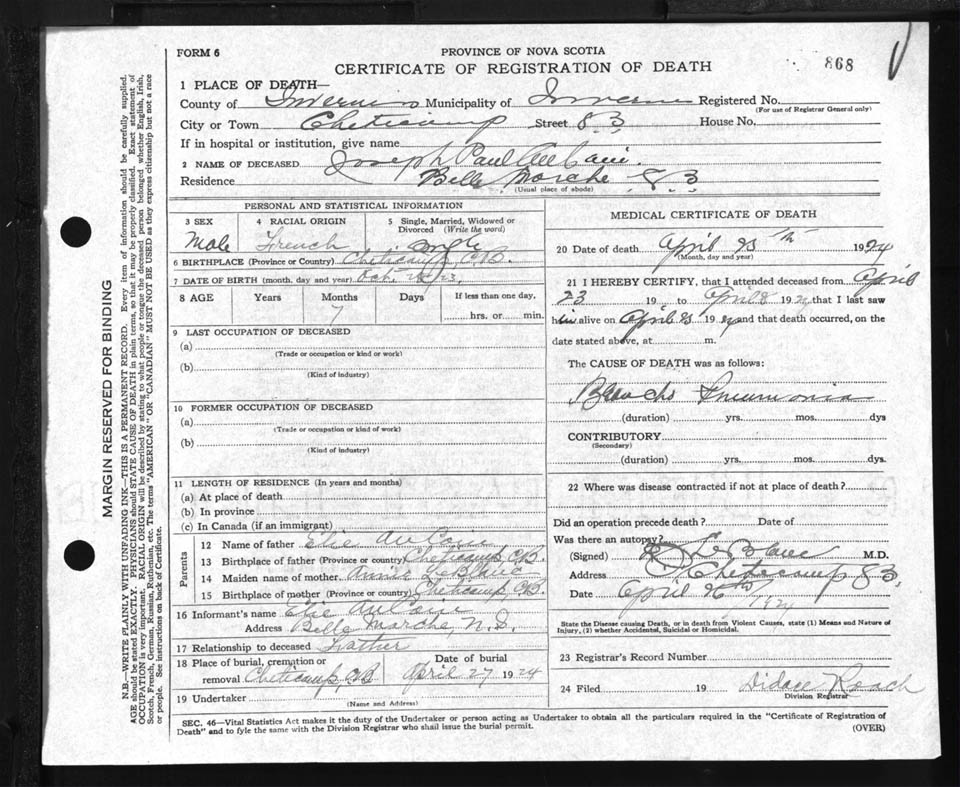 FORM 6
PROVINCE OF NOVA SCOTIA
CERTIFICATE OF REGISTRATION OF DEATH
868
1 PLACE OF DEATH—
County of Inverness Municipality of Inverness Registered No.
(For use of Registrar General only)
City or Town Cheticamp Street 83 House No.
If in hospital or institution, give name
2 NAME OF DECEASED Joseph Paul AuCoin.
Residence Belle Marche 83
(Usual place of abode)
PERSONAL AND STATISTICAL INFORMATION
3 SEX 4 RACIAL ORIGIN 5 Single, Married, Widowed or Divorced (Write the word)
Male French Single
6 BIRTHPLACE (Province or Country) Cheticamp, C.B.
7 DATE OF BIRTH (month, day and year) Oct. 23
8 AGE Years Months Days If less than one day,
7 hrs. or min.
9 LAST OCCUPATION OF DECEASED
(a)
(Trade or occupation or kind or work)
(b)
(Kind of industry)
10 FORMER OCCUPATION OF DECEASED
(a)
(Trade or occupation or kind of work)
(b)
(Kind of industry)
11 LENGTH OF RESIDENCE (In years and months)
(a) At place of death
(b) In province
(c) In Canada (if an immigrant)
Parents
12 Name of father Elie AuCoin
13 Birthplace of father (Province or country) Cheticamp, C.B.
14 Maiden name of mother Annie
15 Birthplace of mother (Province or country) Cheticamp, C.B.
16 Informant's name Elie AuCoin
Address Belle Marche, N.S.
17 Relationship to deceased Father
18 Place of burial, cremation or removal Cheticamp, CB Date of burial April 27 1924
19 Undertaker
(Name and Address)
MEDICAL CERTIFICATE OF DEATH
20 Date of death April 25th 1924
(Month, day and year)
21 I HEREBY CERTIFY, that I attended deceased from April
23 19 to April 19 that I last saw
him alive on April 19 and that death occurred, on the
date stated above, at m.
The CAUSE OF DEATH was as follows:
Broncho Pneumonia
(duration) yrs. mos. dys
CONTRIBUTORY
(Secondary)
(duration) yrs. mos. dys.
22 Where was disease contracted if not at place of death?
Did an operation precede death? Date of
Was there an autopsy?
(Signed) LeBlanc M.D.
Address Cheticamp 83
Date April 26th 1924
State the Disease causing Death, or in death from Violent Causes, state (1) Means and Nature of
Injury, (2) whether Accidental, Suicidal or Homicidal.
23 Registrar's Record Number
24 Filed 19 Didace Roach
Division Registrar
SEC. 46—Vital Statistics Act makes it the duty of the Undertaker or person acting as Undertaker to obtain all the particulars required in the "Certificate of Registration of
Death" and to fyle the same with the Division Registrar who shall issue the burial permit.
(OVER)
MARGIN RESERVED FOR BINDING
N.B.—WRITE PLAINLY WITH UNFADING INK—THIS IS A PERMANENT RECORD. Every item of information should be carefully supplied.
AGE should be stated EXACTLY. PHYSICIANS should STATE CAUSE OF DEATH in plain terms, so that it may be properly classified. Exact statement of
OCCUPATION is very important. RACIAL ORIGIN will be described by stating to what people or tongue the deceased person belonged whether English, Irish,
Scotch, French, German, Russian, Ruthenian, etc. The terms "AMERICAN" OR "CANADIAN" MUST NOT BE USED as they express citizenship but not a race
or people. See instructions on back of Certificate.